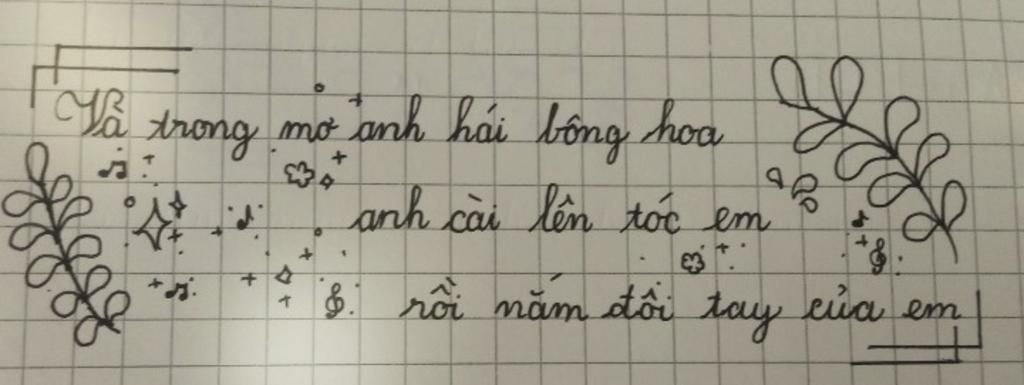 Và trong mơ anh hái bông hoa
anh cài lên tóc em
rồi nắm đôi tay của em